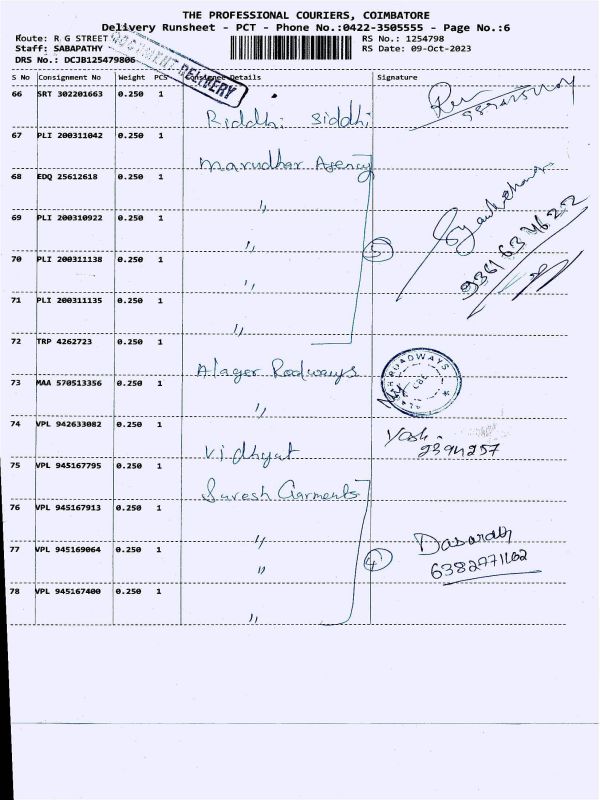 THE PROFESSIONAL COURIERS, COIMBATORE
Delivery Runsheet - PCT - Phone No.:0422-3505555 - Page No.:6
Route: R G STREET RS No.: 1254798
Staff: SABAPATHY RS Date: 09-Oct-2023
DRS No.: DCJB125479806
DOCUMENT DELIVERY
S No Consignment No Weight PCS Consignee Details Signature
66 SRT 302201663 0.250 1 Riddhi Siddhi
67 PLI 200311042 0.250 1 Marudhar Agency
68 EDQ 25612618 0.250 1 "
69 PLI 200310922 0.250 1 " 5
70 PLI 200311138 0.250 1 "
71 PLI 200311135 0.250 1 "
72 TRP 4262723 0.250 1 Alager Roadways
73 MAA 570513356 0.250 1 "
ROADWAYS CBE
74 VPL 942633082 0.250 1 Vidhyut Yash.
75 VPL 945167795 0.250 1 Suresh Garments
76 VPL 945167913 0.250 1 "
77 VPL 945169064 0.250 1 " 4 Dasarath
78 VPL 945167400 0.250 1 "